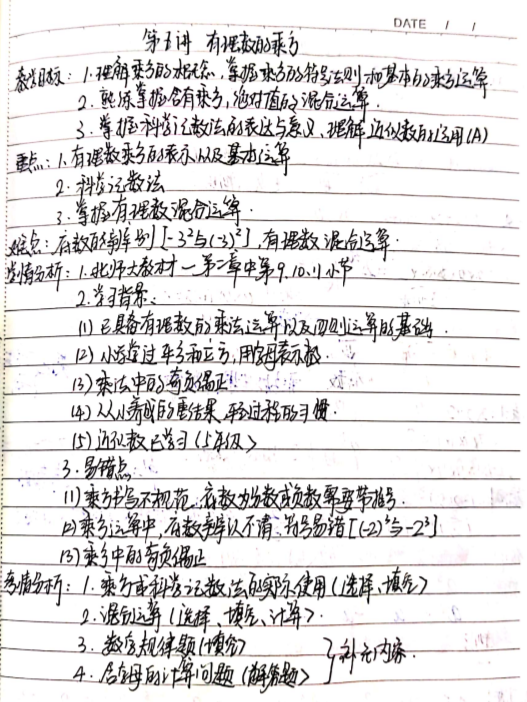 DATE / /
第五讲 有理数的乘方
教学目标：1.理解乘方的概念，掌握乘方的符号法则和基本的乘方运算
2.熟练掌握含有乘方，绝对值的混合运算.
3.掌握科学记数法的表达与意义、理解近似数的运用(A)
重点：1.有理数乘方的表示以及基本运算
2.科学记数法
3.掌握有理数混合运算.
难点：底数的辨别[-3²与(-3)²]，有理数混合运算.
学情分析：1.北师大教材一第二章中第9.10.11小节
2.学习背景：
(1)已具备有理数的乘法运算以及四则运算的基础.
(2)小学学过平方和立方，用字母表示数.
(3)乘法中的奇负偶正.
(4)从小养成的重结果，轻过程的习惯.
(5)近似数已学习(5年级)
3.易错点
(1)乘方书写不规范.底数为分数或负数需要带括号.
(2)乘方运算中，底数辨认不清.符号易错[(-2)³与-2³]
(3)乘方中的奇负偶正
考情分析：1.乘方或科学记数法的实际使用(选择、填空)
2.混合运算(选择、填空、计算).
3.数字规律题(填空)
4.含字母的计算问题(解答题) }补充内容.